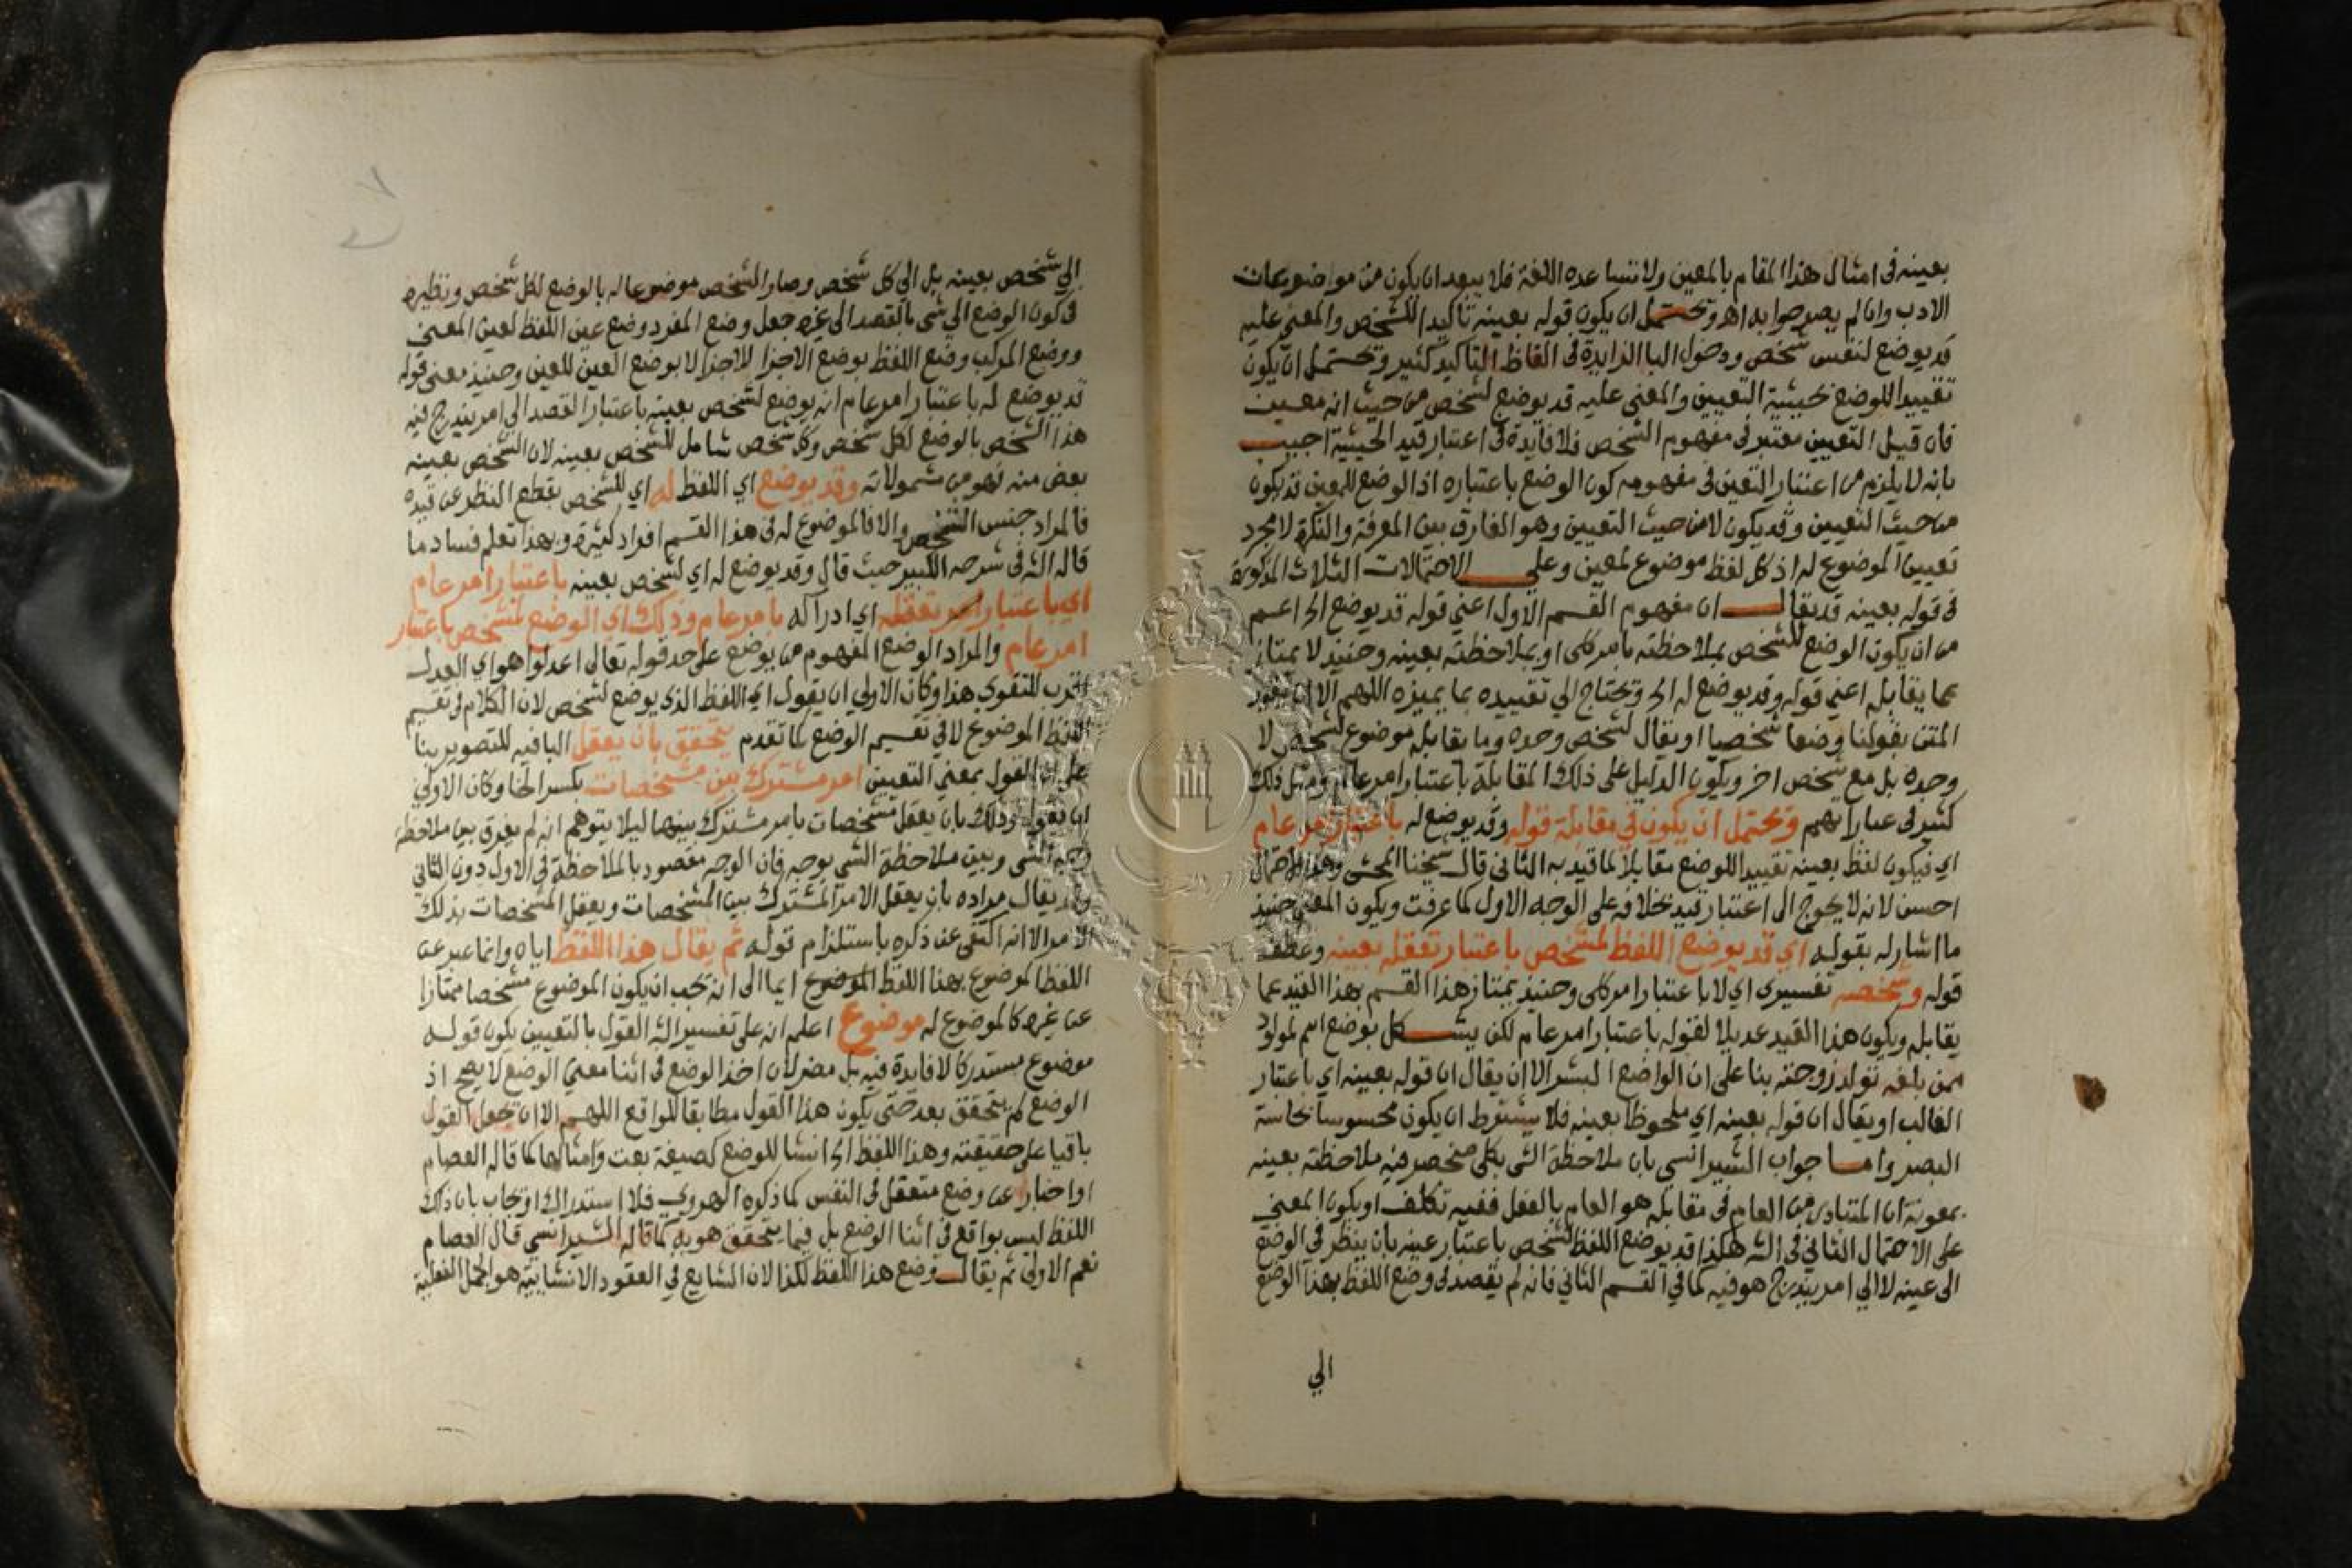 بعينه في امثال هذا المقام بالمعين ولا تساعده اللغة فلا يبعد ان يكون من موضوعات
الادب وان لم يصرحوا به اهـ ويحتمل ان يكون قوله بعينه تاكيدا للشخص والمعنى عليه
قد يوضع لنفس شخص ودخول البا الزايدة في الفاظ التاكيد كثير ويحتمل ان يكون
تقييدا للوضع بحيثية التعيين والمعنى عليه قد يوضع لشخص من حيث انه معين
فان قيل التعيين معتبر في مفهوم الشخص فلا فايدة في اعتبار قيد الحيثية اجيب
بانه لا يلزم من اعتبار التعين في مفهومه كون الوضع باعتباره اذ الوضع للمعين قد يكون
من حيث التعيين وقد يكون لا من حيث التعيين وهو الفارق بين المعرفة والنكرة لا مجرد
تعيين الموضوع له اذ كل لفظ موضوع لمعين وعلى الاحتمالات الثلاث المذكورة
في قوله بعينه قد يقال ان مفهوم القسم الاول اعني قوله قد يوضع الخ اعم
من ان يكون الوضع للشخص بملاحظته بامر كلي او بملاحظته بعينه وحينيذ لا يمتاز
عما يقابله اعني قوله وقد يوضع له الخ ويحتاج الي تقييده بما يميزه اللهم الا ان يقيد
المتن بقولنا وضعا شخصيا او يقال لشخص وحده وما يقابله موضوع لشخص لا
وحده بل مع شخص اخر ويكون الدليل على ذلك المقابلة باعتبار امر عام ومثل ذلك
كثير في عباراتهم ويحتمل ان يكون في مقابلة قوله وقد يوضع له باعتبار امر عام
اي فيكون لفظ بعينه تقييدا للوضع مقابلا لما قيد به الثاني قال شيخنا المحشي وهذا الاحتمال
احسن لانه لا يحوج الى اعتبار قيد بخلافه على الوجه الاول كما عرفت ويكون المعنى حينيذ
ما اشار له بقوله اي قد يوضع اللفظ لمشخص باعتبار تعقله بعينه وعطف
قوله وشخصه تفسيري اي لا باعتبار امر كلي وحينيذ يمتاز هذا القسم بهذا القيد عما
يقابله ويكون هذا القيد عديلا لقوله باعتبار امر عام لكن يشكل بوضع اسم لمولود
ممن بلغه تولد زوجته بنا على ان الواضع البشر الا ان يقال ان قوله بعينه اي باعتبار
الغالب او يقال ان قوله بعينه اي ملحوظا بعينه فلا يشترط ان يكون محسوسا بحاسة
البصر واما جواب الشيرانسي بان ملاحظة الشي بكلي منحصر فيه ملاحظة بعينه
بمعونة ان المتبادر من العام في مقابله هو العام بالفعل ففيه تكلف او يكون المعنى
على الاحتمال الثاني في الشه هكذا قد يوضع اللفظ لشخص باعتبار عينه بان ينظر في الوضع
الى عينه لا الي امر يندرج هو فيه كما في القسم الثاني فانه لم يقصد في وضع اللفظ بهذا الوضع
الي
الي شخص بعينه بل الي كل شخص وصار الشخص موضوعا له بالوضع لكل شخص ونظيره
في كون الوضع الي شي بالقصد الى غيره جعل وضع المفرد وضع عين اللفظ لعين المعنى
ووضع المركب وضع اللفظ بوضع الاجزا للاجزا لا بوضع العين للعين وحينيذ معنى قوله
قد يوضع له باعتبار امر عام انه يوضع لشخص بعينه باعتبار القصد الي امر يندرج فيه
هذا الشخص بالوضع لكل شخص وكل شخص شامل للشخص بعينه لان الشخص بعينه
بعض منه فهو من مشمولاته وقد يوضع اي اللفظ له اي للشخص بقطع النظر عن قيده
فالمراد جنس الشخص والا فالموضوع له في هذا القسم افراد كثيرة وبهذا تعلم فساد ما
قاله الشه في شرحه الكبير حيث قال وقد يوضع له اي لشخص بعينه باعتبار امر عام
اي باعتبار امر تعقله اي ادراكه بامر عام وذلك اي الوضع لمشخص باعتبار
امر عام والمراد الوضع المفهوم من يوضع على حد قوله تعالى اعدلوا هو اي العدل
اقرب للتقوي هذا وكان الاولي ان يقول اي اللفظ الذي يوضع لشخص لان الكلام في تقسيم
اللفظ الموضوع لا في تقسيم الوضع كما تقدم يتحقق بان يعقل البا فيه للتصوير بنا
على ان القول بمعني التعيين امر مشترك بين مشخصات بكسر الخا وكان الاولي
ان يقول وذلك بان يعقل مشخصات بامر مشترك بينهما ليلا يتوهم انه لم يفرق بين ملاحظة
وجه الشي وبين ملاحظة الشي بوجه فان الوجه مقصود بالملاحظة في الاول دون الثاني
وقد يقال مراده بان يعقل الامر المشترك بين المشخصات ويعقل المشخصات بذلك
الامر الا انه اكتفى عن ذكره باستلزام قوله ثم يقال هذا اللفظ اياه وانما عبر عن
اللفظ الموضوع بهذا اللفظ الموضوع ايما الى انه يجب ان يكون الموضوع مشخصا ممتازا
عن غيره كالموضوع له موضوع اعلم انه على تفسير الشه القول بالتعيين يكون قوله
موضوع مستدركا لا فايدة فيه بل مضر لان اخذ الوضع في اثنا معني الوضع لا يصح اذ
الوضع لم يتحقق بعد حتى يكون هذا القول مطابقا للواقع اللهم الا ان تجعل القول
باقيا على حقيقته وهذا اللفظ الخ انشا للوضع كصيغة بعت وامثالها كما قاله العصام
او اخبار عن وضع متعقل في النفس كما ذكره الهروي فلا استدراك او تجاب بان ذلك
اللفظ ليس بواقع في اثنا الوضع بل فيما يتحقق هو به كما قاله الشيرانسي قال العصام
نعم الاولي ثم يقال وضع هذا اللفظ لكذا لان الشايع في العقود الانشاييه هو الجمل الفعلية